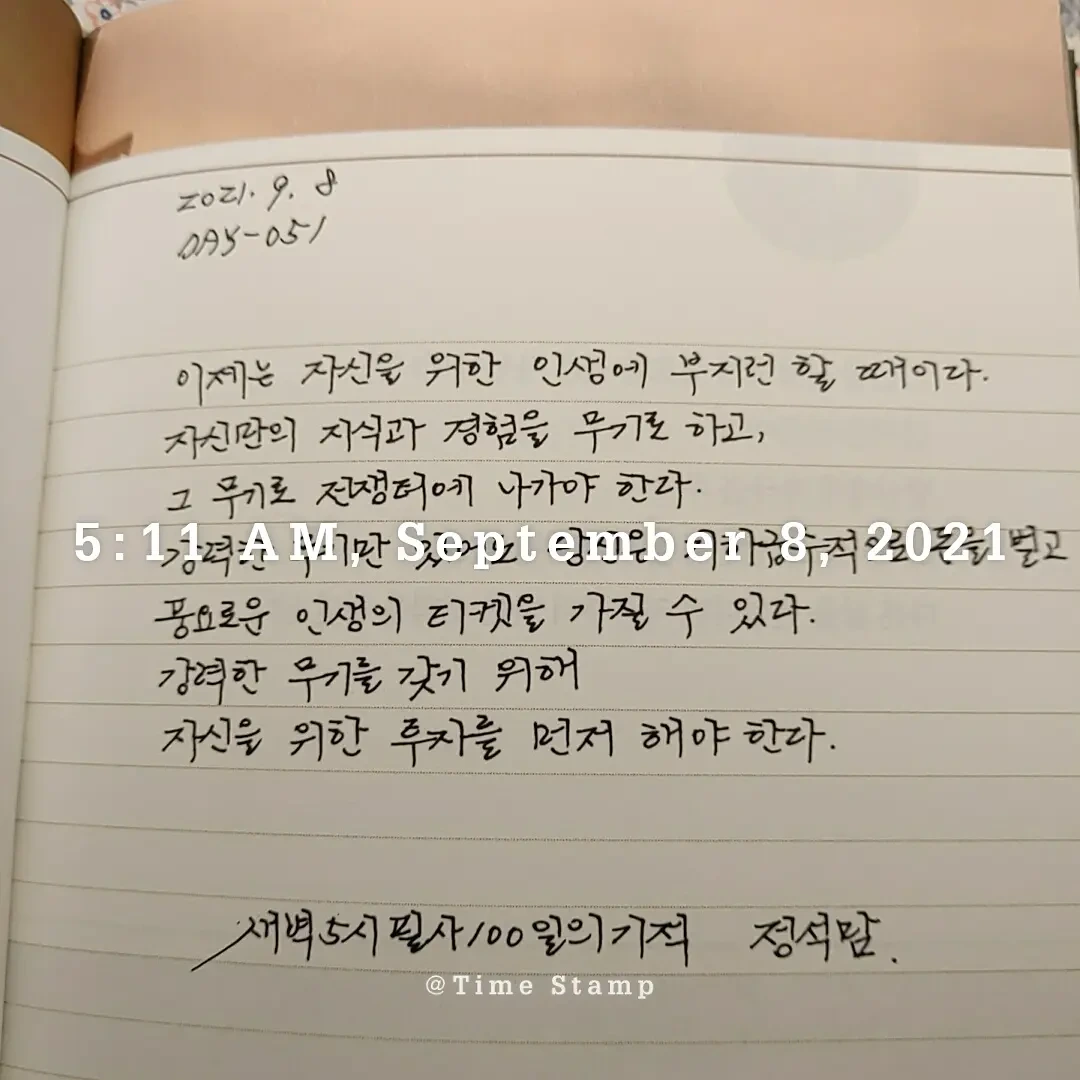 2021. 9. 8
DAY-051
이제는 자신을 위한 인생에 부지런 할 때이다.
자신만의 지식과 경험을 무기로 하고,
그 무기로 전쟁터에 나가야 한다.
강력한 무기만 있어도 당신은 기하급수적으로 돈을 벌고
5:11 AM, September 8, 2021
풍요로운 인생의 티켓을 가질 수 있다.
강력한 무기를 갖기 위해
자신을 위한 투자를 먼저 해야 한다.
새벽5시필사100일의기적 정석맘.
@Time Stamp